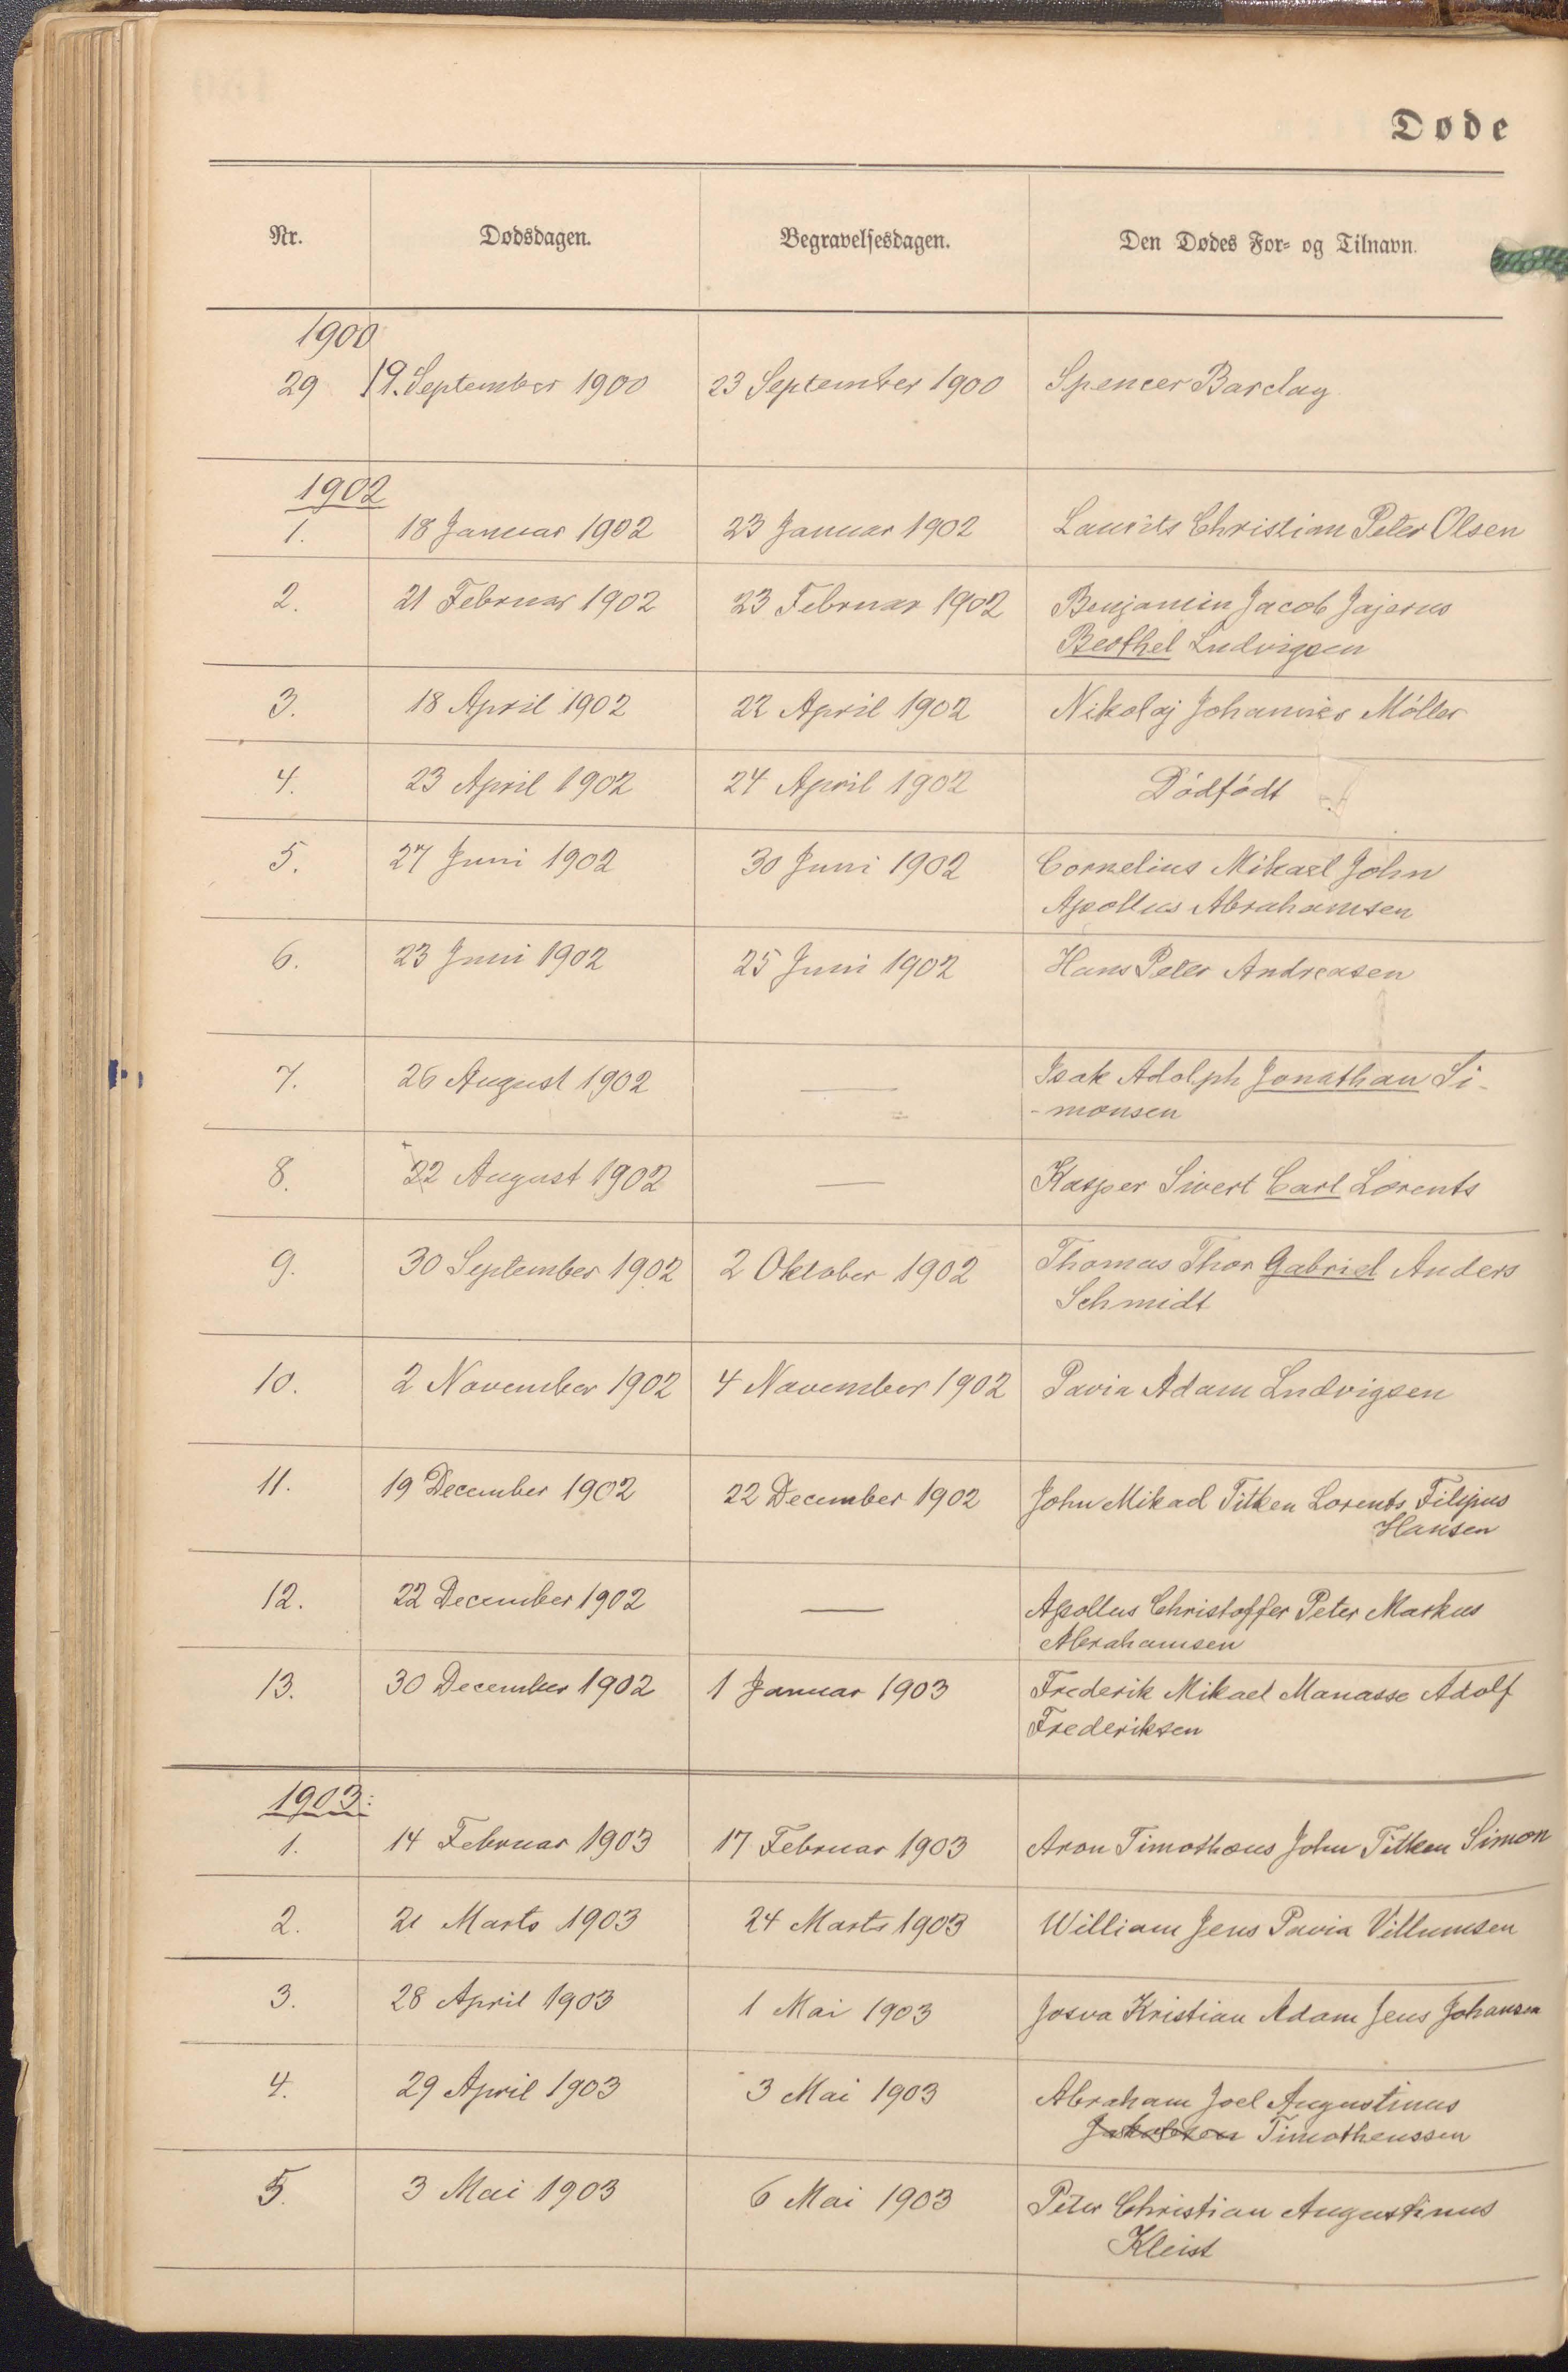 Døde
Nr. Dødsdagen. Begravelsesdagen. Den Dødes For- og Tilnavn.
1900
29 19. September 1900 23 September 1900 Spencer Barclay
1902
1. 18 Januar 1902 23 Januar 1902 Laurits Christian Peter Olsen
2. 21 Februar 1902 23 Februar 1902 Benjamin Jacob Jajerus
Berthel Ludvigsen
3. 18 April 1902 22 April 1902 Nikolaj Johannes Möller
4. 23 April 1902 24 April 1902 Dödfödt
5. 27 Juni 1902 30 Juni 1902 Cornelius Mikael John
Apollus Abrahamsen
6. 23 Juni 1902 25 Juni 1902 Hans Peter Andreasen
7. 26 August 1902 — Isak Adolph Jonathan Si-
-monsen
8. 22 August 1902 — Kasper Sivert Carl Lorents
9. 30 September 1902 2 Oktober 1902 Thomas Thor Gabriel Anders
Schmidt
10. 2 November 1902 4 November 1902 Pavia Adam Ludvigsen
11. 19 December 1902 22 December 1902 John Mikael Titken Lorents Filipus
Hansen
12. 22 December 1902 — Apollus Christoffer Peter Markus
Abrahamsen
13. 30 December 1902 1 Januar 1903 Frederik Mikael Manasse Adolf
Frederiksen
1903:
1. 14 Februar 1903 17 Februar 1903 Aron Timothæus John Titken Simon
2. 21 Marts 1903 24 Marts 1903 William Jens Pavia Villumsen
3. 28 April 1903 1 Mai 1903 Josva Kristian Adam Jens Johansen
4. 29 April 1903 3 Mai 1903 Abraham Joel Augustinus
Jakobsen Timotheussen
5. 3 Mai 1903 6 Mai 1903 Peter Christian Augustinus
Kleist